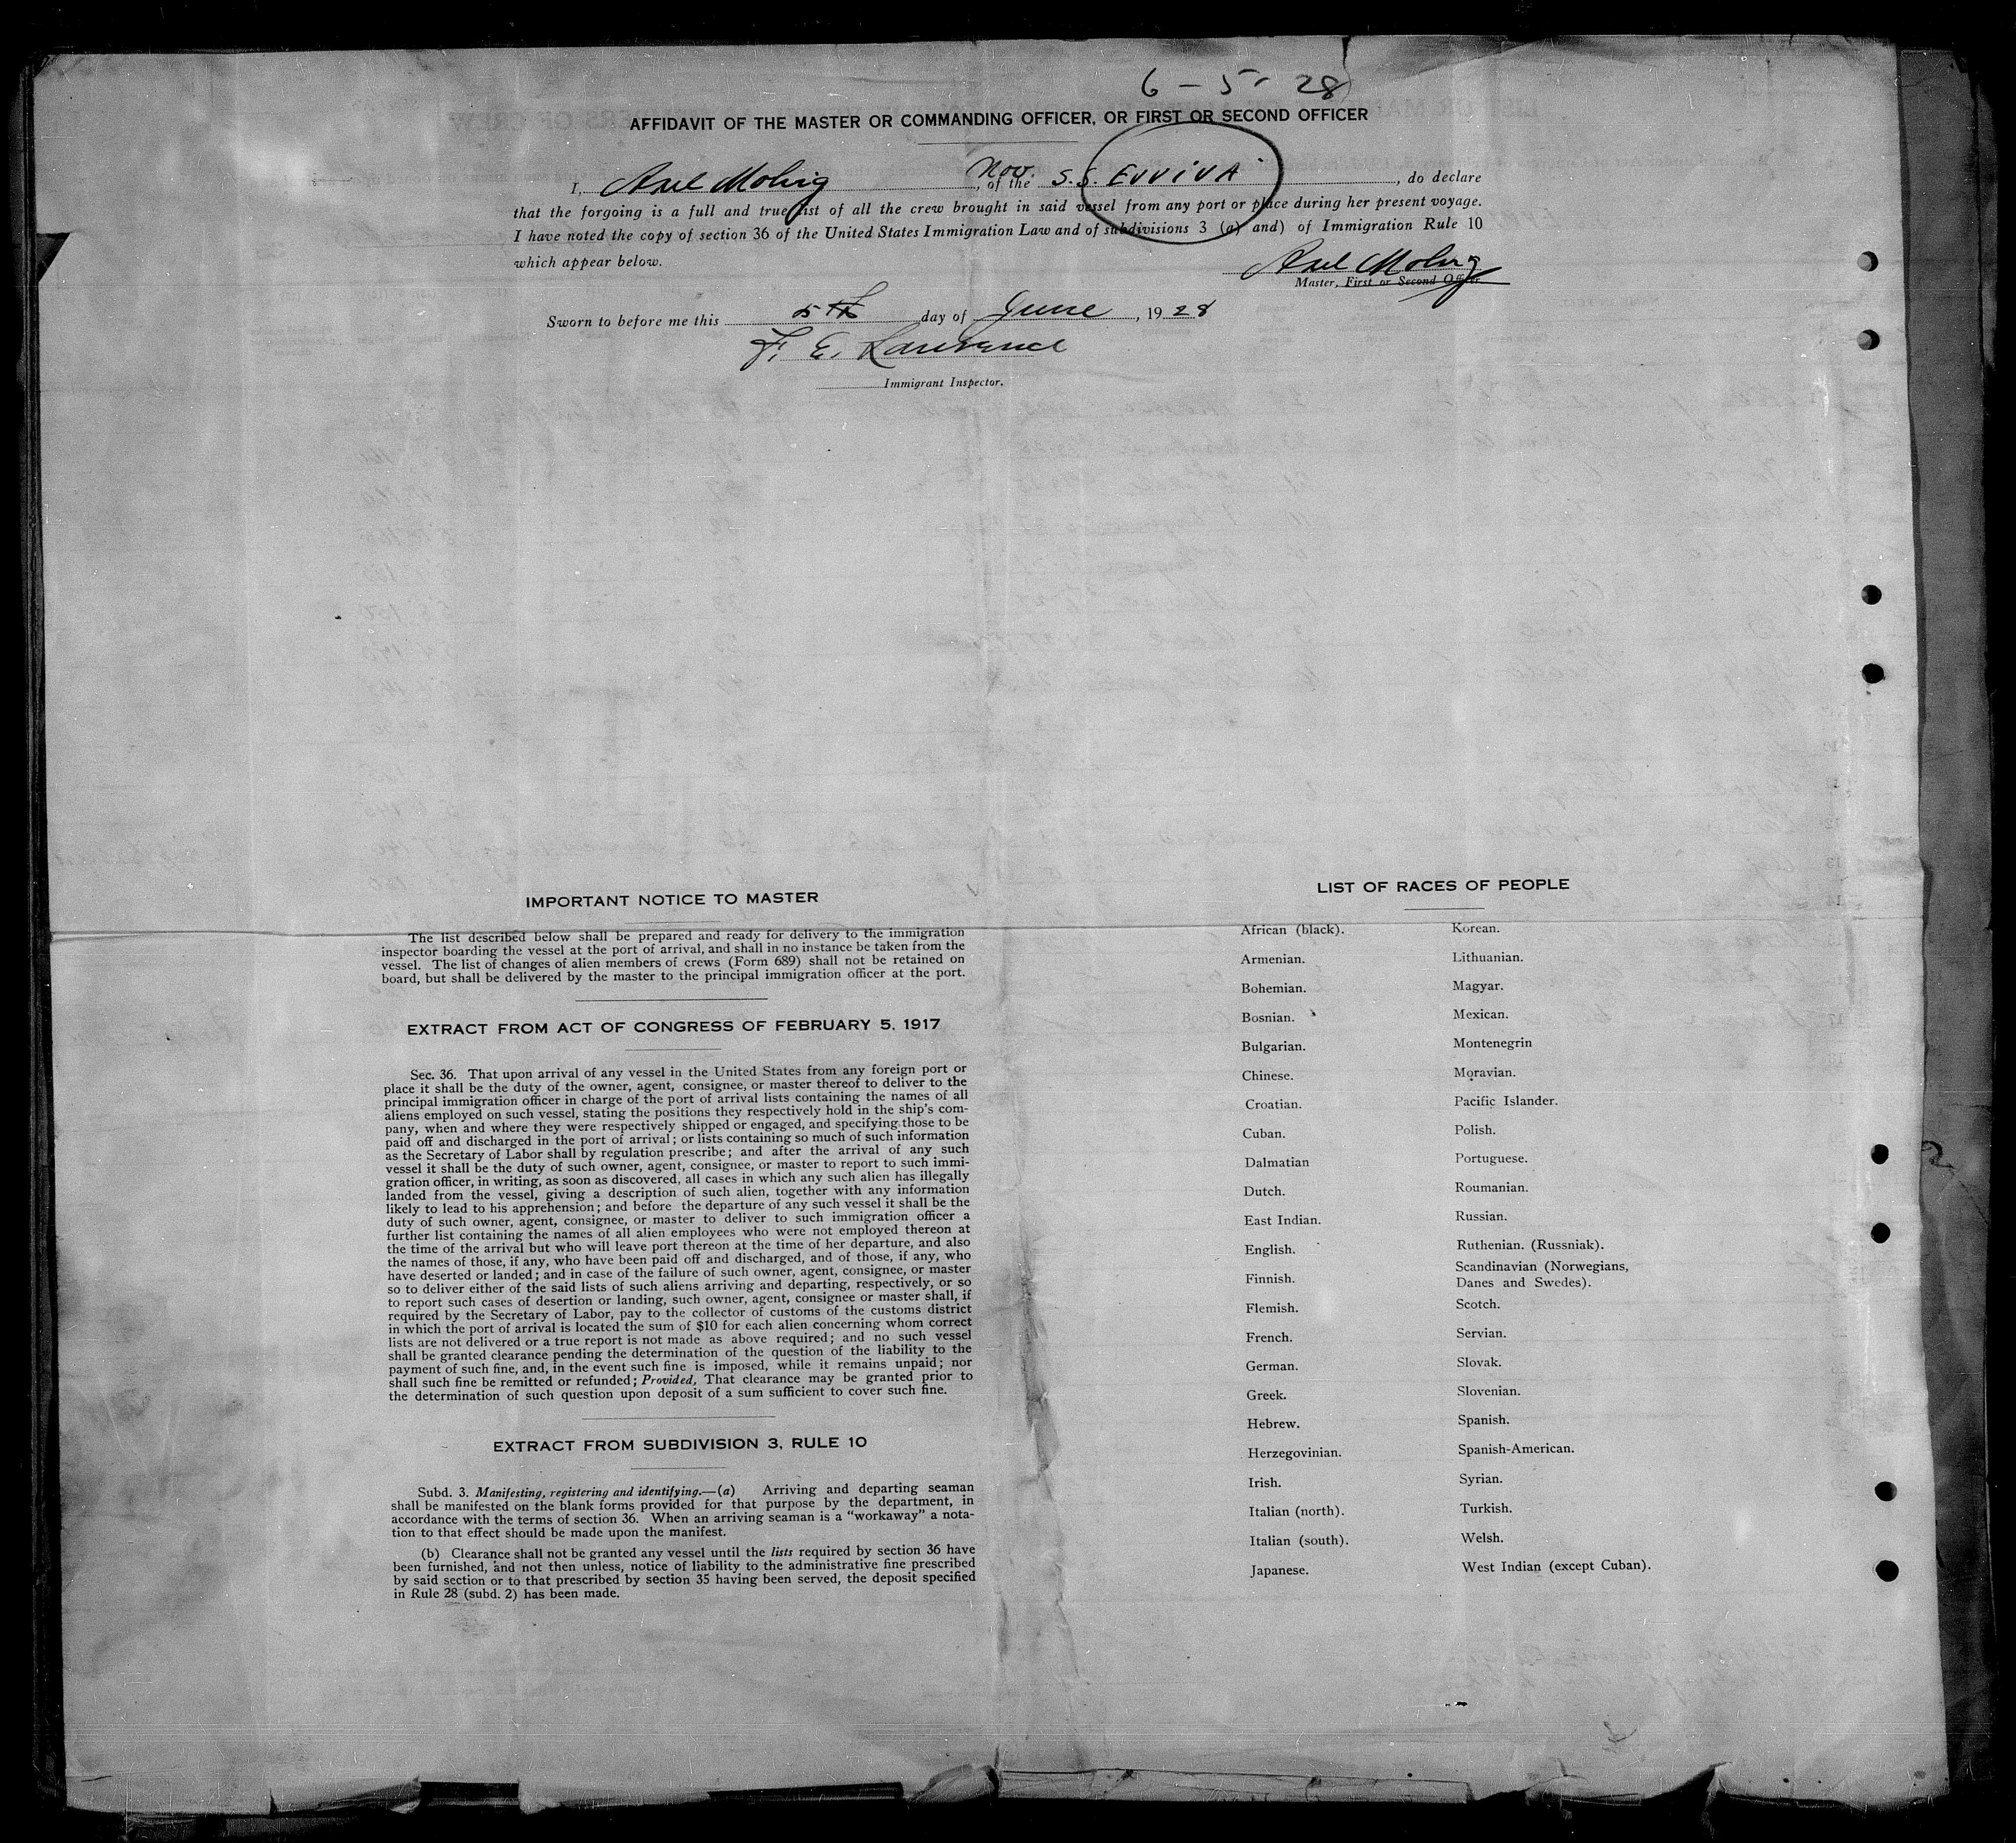 6 - 5 - 28
AFFIDAVIT OF THE MASTER OR COMMANDING OFFICER, OR FIRST OR SECOND OFFICER
I, Axel Molvig, of the Nov. S.S. EVVIVA, do declare
that the forgoing is a full and true list of all the crew brought in said vessel from any port or place during her present voyage.
I have noted the copy of section 36 of the United States Immigration Law and of subdivisions 3 (a) and) of Immigration Rule 10
which appear below.
Axel Molvig
Master, First or Second Officer
Sworn to before me this 5th day of June, 1928
F. E. Lawrence
Immigrant Inspector.
IMPORTANT NOTICE TO MASTER
The list described below shall be prepared and ready for delivery to the immigration
inspector boarding the vessel at the port of arrival, and shall in no instance be taken from the
vessel. The list of changes of alien members of crews (Form 689) shall not be retained on
board, but shall be delivered by the master to the principal immigration officer at the port.
EXTRACT FROM ACT OF CONGRESS OF FEBRUARY 5, 1917
Sec. 36. That upon arrival of any vessel in the United States from any foreign port or
place it shall be the duty of the owner, agent, consignee, or master thereof to deliver to the
principal immigration officer in charge of the port of arrival lists containing the names of all
aliens employed on such vessel, stating the positions they respectively hold in the ship's com-
pany, when and where they were respectively shipped or engaged, and specifying those to be
paid off and discharged in the port of arrival; or lists containing so much of such information
as the Secretary of Labor shall by regulation prescribe; and after the arrival of any such
vessel it shall be the duty of such owner, agent, consignee, or master to report to such immi-
gration officer, in writing, as soon as discovered, all cases in which any such alien has illegally
landed from the vessel, giving a description of such alien, together with any information
likely to lead to his apprehension; and before the departure of any such vessel it shall be the
duty of such owner, agent, consignee, or master to deliver to such immigration officer a
further list containing the names of all alien employees who were not employed thereon at
the time of the arrival but who will leave port thereon at the time of her departure, and also
the names of those, if any, who have been paid off and discharged, and of those, if any, who
have deserted or landed; and in case of the failure of such owner, agent, consignee, or master
so to deliver either of the said lists of such aliens arriving and departing, respectively, or so
to report such cases of desertion or landing, such owner, agent, consignee or master shall, if
required by the Secretary of Labor, pay to the collector of customs of the customs district
in which the port of arrival is located the sum of $10 for each alien concerning whom correct
lists are not delivered or a true report is not made as above required; and no such vessel
shall be granted clearance pending the determination of the question of the liability to the
payment of such fine, and, in the event such fine is imposed, while it remains unpaid; nor
shall such fine be remitted or refunded; Provided, That clearance may be granted prior to
the determination of such question upon deposit of a sum sufficient to cover such fine.
EXTRACT FROM SUBDIVISION 3, RULE 10
Subd. 3. Manifesting, registering and identifying.—(a) Arriving and departing seaman
shall be manifested on the blank forms provided for that purpose by the department, in
accordance with the terms of section 36. When an arriving seaman is a "workaway" a nota-
tion to that effect should be made upon the manifest.
(b) Clearance shall not be granted any vessel until the lists required by section 36 have
been furnished, and not then unless, notice of liability to the administrative fine prescribed
by said section or to that prescribed by section 35 having been served, the deposit specified
in Rule 28 (subd. 2) has been made.
LIST OF RACES OF PEOPLE
African (black).
Armenian.
Bohemian.
Bosnian.
Bulgarian.
Chinese.
Croatian.
Cuban.
Dalmatian
Dutch.
East Indian.
English.
Finnish.
Flemish.
French.
German.
Greek.
Hebrew.
Herzegovinian.
Irish.
Italian (north).
Italian (south).
Japanese.
Korean.
Lithuanian.
Magyar.
Mexican.
Montenegrin
Moravian.
Pacific Islander.
Polish.
Portuguese.
Roumanian.
Russian.
Ruthenian. (Russniak).
Scandinavian (Norwegians,
Danes and Swedes).
Scotch.
Servian.
Slovak.
Slovenian.
Spanish.
Spanish-American.
Syrian.
Turkish.
Welsh.
West Indian (except Cuban).
2